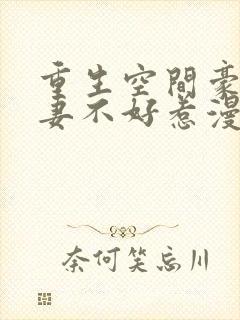 重生空間豪
妻不好惹漫
奈何笑忘川